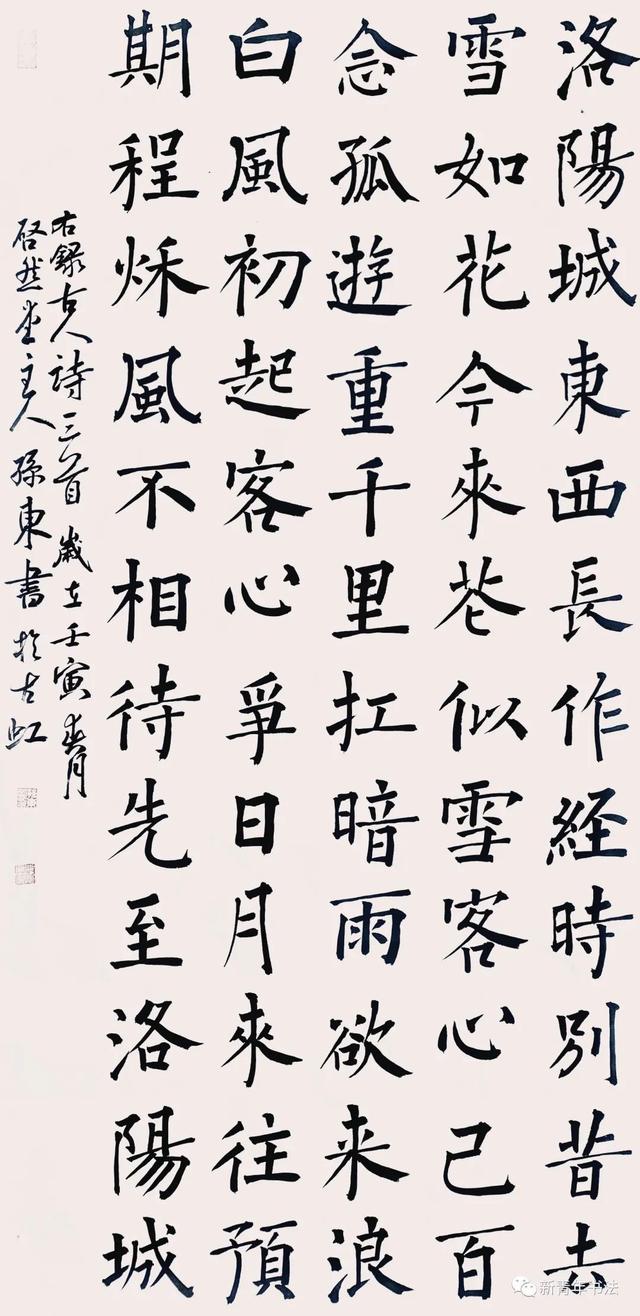 洛陽城東西長作経時別昔去
雪如花今來花似雪客心己百
念孤遊重千里扛暗雨欲来浪
白風初起客心爭日月來往預
期程秌風不相待先至洛陽城
右録古人詩三首歲在壬寅春月
啓然堂主人孫東書於古虹
新青年书法